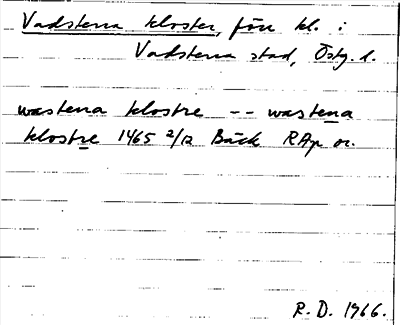 Vadstena kloster, förr kl. i
Vadstena stad, Östg. l.
wastena klostre -- wastena
klostre 1465 2/12 Bäck RAp or.
R. D. 1966.